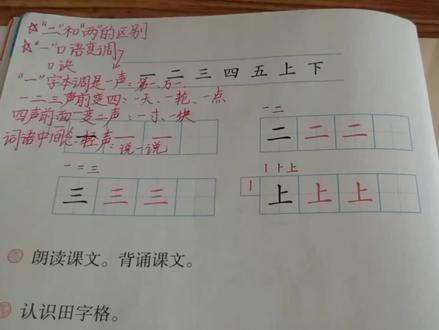 ☆"二"和"两"的区别
☆"一"口语变调
口诀
一 二 三 四 五 上 下
"一"字本调是一声:第一、万一
一二三声前变四:一天、一轮、一点
四声前面一变二声:一寸、一块
词语中间念轻声:说一说
一 二
一 一 一
二 二 二
一 二 三
三 三 三
丨 卜 上
上 上 上
朗读课文。背诵课文。
认识田字格。